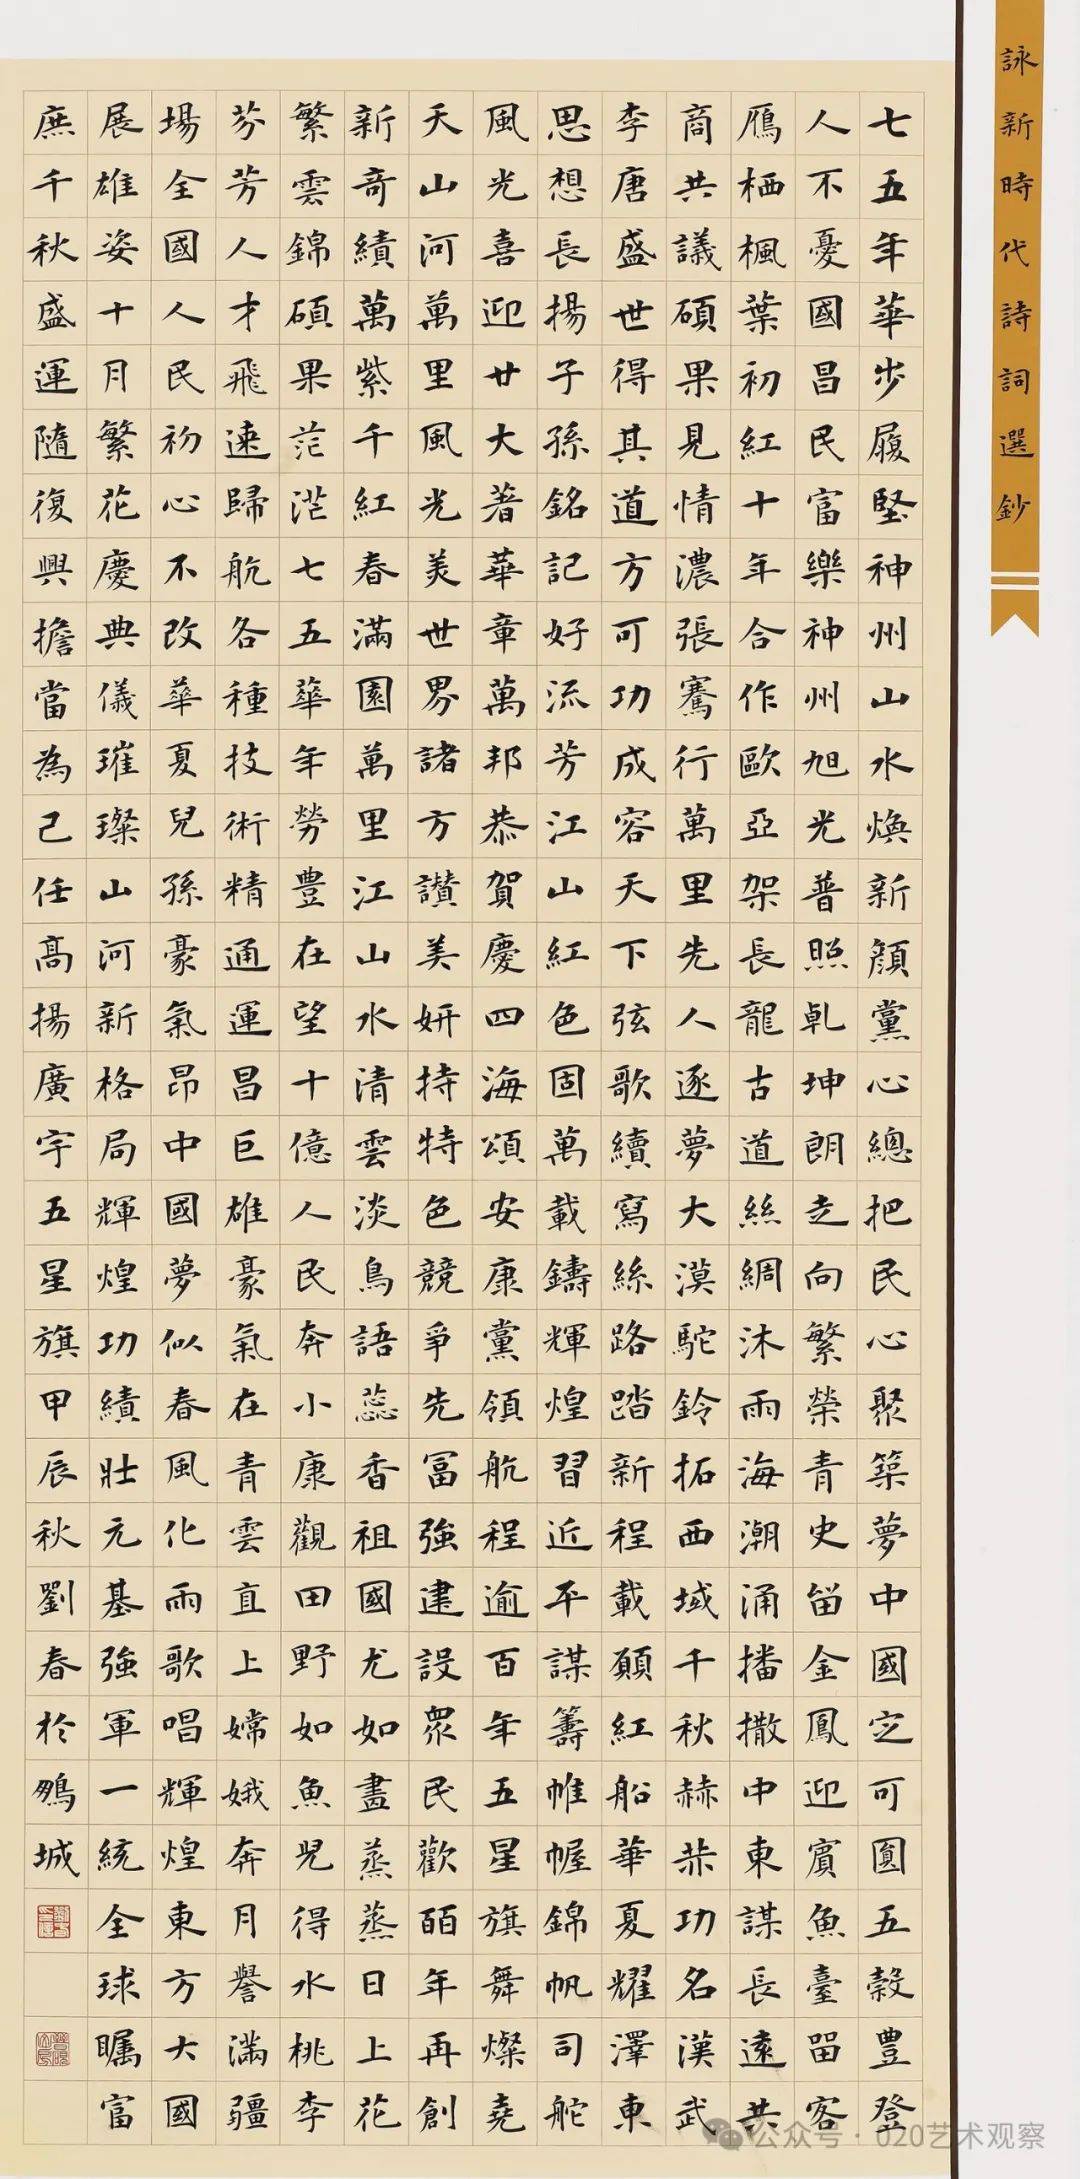 詠新時代詩詞選鈔
七五年華步履堅神州山水煥新顔黨心總把民心聚築夢中國定可圓五穀豐登
人不憂國昌民富樂神州旭光普照乹坤朗走向繁榮青史留金鳳迎賓魚臺留客
鴈栖楓葉初紅十年合作歐亞架長龍古道絲綢沐雨海潮涌播撒中東謀長遠共
商共議碩果見情濃張騫行萬里先人逐夢大漠駝鈴拓西域千秋赫功名漢武
李唐盛世得其道方可功成容天下弦歌續寫絲路踏新程載願紅船華夏耀澤東
思想長揚子孫銘記好流芳江山紅色固萬載鑄輝煌習近平謀籌帷幄錦帆司舵
風光喜迎廿大著華章萬邦恭賀慶四海頌安康黨領航程逾百年五星旗舞燦堯
天山河萬里風光美世界諸方讚美妍持特色競爭先富強建設眾民歡百年再創
新奇績萬紫千紅春滿園萬里江山水清雲淡鳥語蕊香祖國尤如畫蒸蒸日上花
繁雲錦碩果茫茫七五華年勞豊在望十億人民奔小康觀田野如魚兒得水桃李
芬芳人才飛速歸航各種技術精通運昌巨雄豪氣在青雲直上嫦娥奔月譽滿疆
場全國人民初心不改華夏兒孫豪氣昂中國夢似春風化雨歌唱輝煌東方大國
展雄姿十月繁花慶典儀璀璨山河新格局輝煌功績壯元基強軍一統全球矚富
庶千秋盛運隨復興擔當為己任高揚廣宇五星旗甲辰秋劉春於鵝城
公众号·020艺术观察